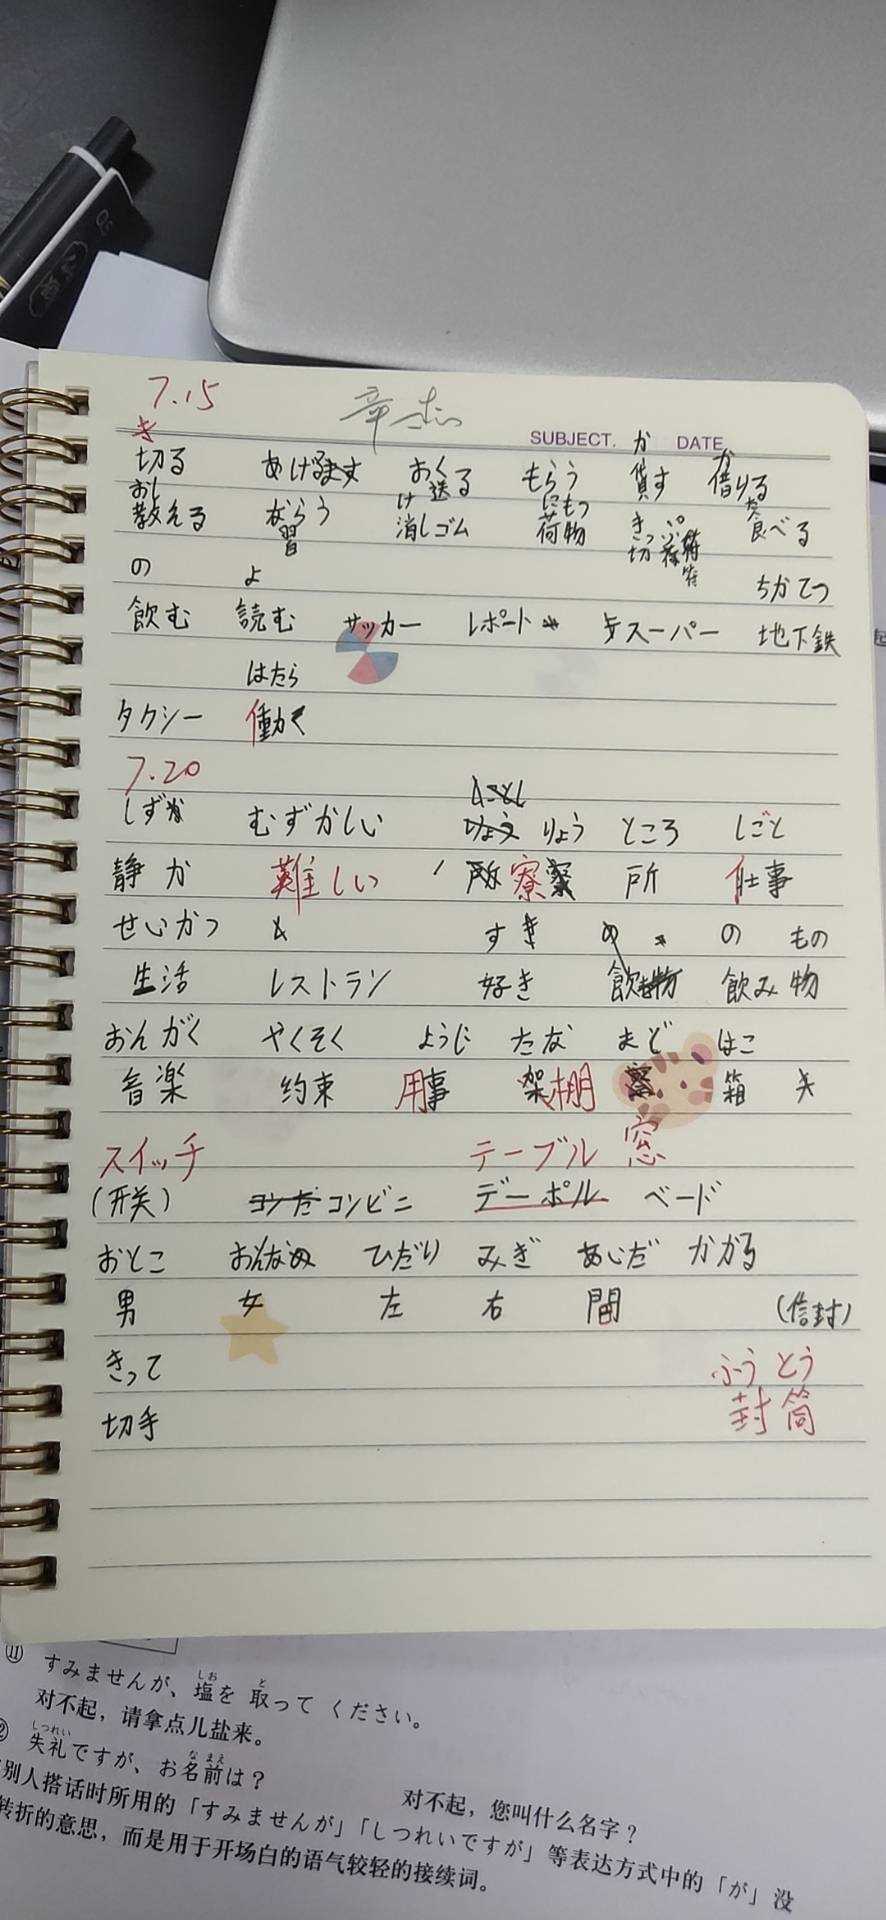 7.15
SUBJECT. DATE
き か か
切る あげる おくる もらう 貸す 借りる
おし け 送 にもつ た
教える ならう 消しゴム 荷物 きっぷ 食べる
習 切符
の よ ちかてつ
飲む 読む サッカー レポート スーパー 地下鉄
はたら
タクシー 働く
7.20
しずか むずかしい りょう ところ しごと
静か 難しい 寮 所 仕事
せいかつ すき の もの
生活 レストラン 好き 飲み物
おんがく やくそく ようじ たな まど はこ
音楽 約束 用事 棚 箱
スイッチ テーブル 窓
(开关) コンビニ デーポル ベード
おとこ おんな ひだり みぎ あいだ かかる
男 女 左 右 間 (信封)
きって ふうとう
切手 封筒
⑪ すみませんが、塩を 取って ください。
しお と
对不起，请拿点儿盐来。
しつれい なまえ
失礼ですが、お名前は？
对不起，您叫什么名字？
别人搭话时所用的「すみませんが」「しつれいですが」等表达方式中的「が」没
转折的意思，而是用于开场白的语气较轻的接续词。